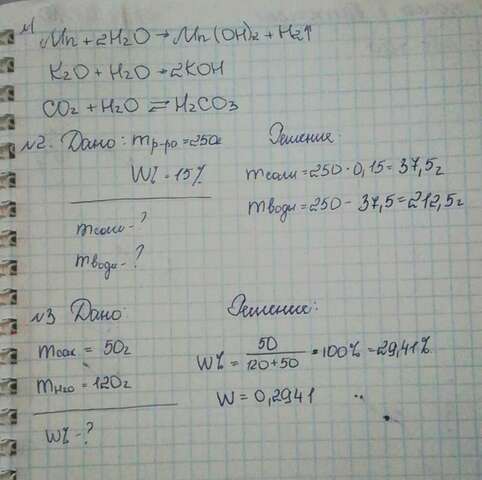 №1
Mn + 2H₂O → Mn(OH)₂ + H₂↑
K₂O + H₂O → 2KOH
CO₂ + H₂O ⇌ H₂CO₃
№2. Дано: mр-ра = 250г
W% = 15%
mсоли - ?
mводы - ?
Решение:
mсоли = 250 · 0,15 = 37,5г
mводы = 250 - 37,5 = 212,5г
№3 Дано:
mсах = 50г
mH₂O = 120г
W% - ?
Решение:
W% = 50/(120+50) · 100% = 29,41%
W = 0,2941